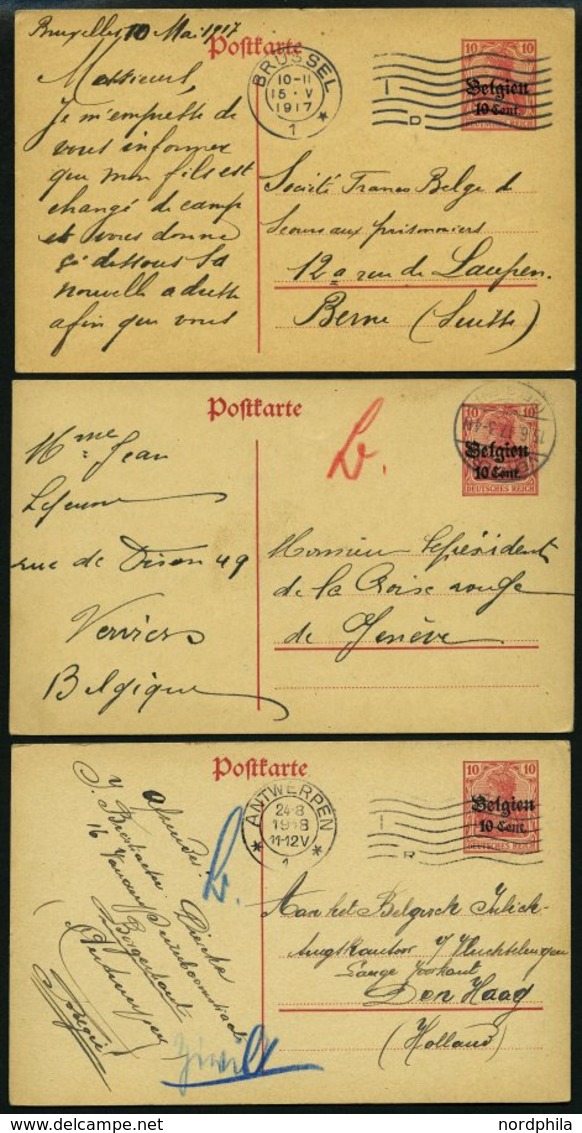 Bruxelles 10 Mai 1917
Postkarte
BRÜSSEL
10-11
15 · V
1917
1
10 10
Belgien
10 Cent.
DEUTSCHES REICH
Messieurs,
Je m'empresse de
vous informer
que mon fils est
changé de camp
et vous donne
ci dessous sa
nouvelle adresse
afin que vous
Société Franco Belge de
Secours aux prisonniers
12a rue de Laupen.
Berne (Suisse)
Postkarte
L.
10 10
Belgien
10 Cent.
DEUTSCHES REICH
Mme Jean
Lejeune
rue de Dison 49
Verviers
Belgique
Monsieur le président
de la Croix rouge
de Genève
Postkarte
ANTWERPEN
24·8
1918
11-12V
1
R
10 10
Belgien
10 Cent.
DEUTSCHES REICH
16
Borgerhout
(Antwerpen)
België
L.
Aan het Belgisch
Lange Voorhout
Den Haag
(Holland)
www.delcampe.net nordphila